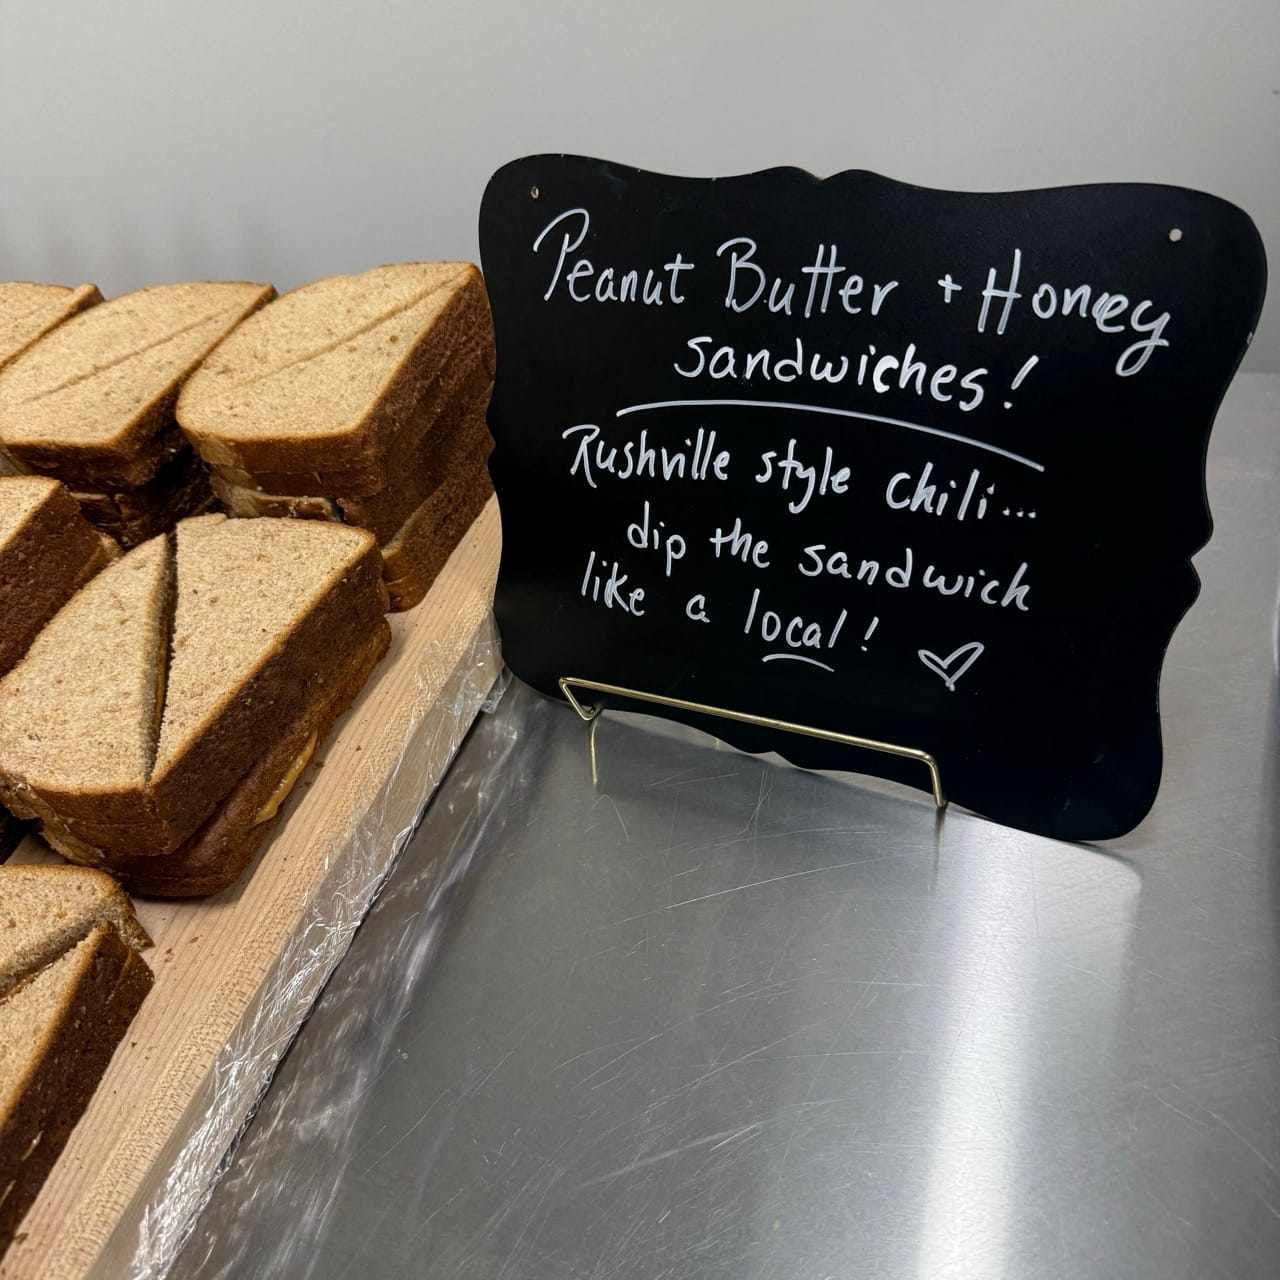 Peanut Butter + Honey
sandwiches!
Rushville style chili...
dip the sandwich
like a local! ♡